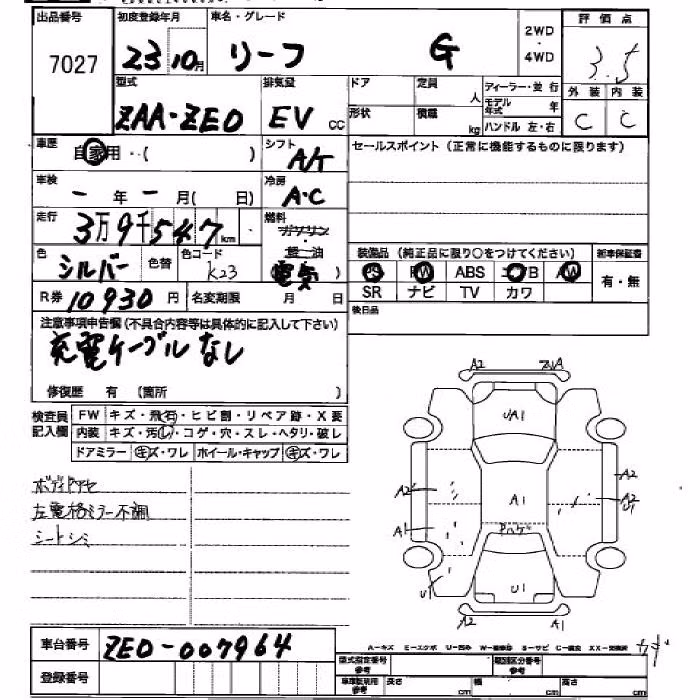 出品番号 7027
初度登録年月 23 10月
車名・グレード リーフ G
2WD ・ 4WD
評価点 3.5
外装 内装
C C
型式 ZAA-ZE0
排気量 EV cc
ドア 定員 人
形状 積載 kg
ディーラー・並行
モデル年式 年
ハンドル 左・右
車歴 自家用・( )
シフト A/T
セールスポイント (正常に機能するものに限ります)
車検 ー 年 ー 月( 日)
冷房 A・C
走行 3万9千547km
燃料 ガソリン
軽油
(電気)
色 シルバー 色替 色コード K23
装備品 (純正品に限り○をつけてください) 新車保証書
PS PW ABS エアB AW 有・無
SR ナビ TV カワ
R券 10930円 名変期限 月 日
後日品
注意事項申告欄(不具合内容等は具体的に記入して下さい)
充電ケーブルなし
修復歴 有 (箇所 )
検査員記入欄
FW キズ・飛石・ヒビ割・リペア跡・X要
内装 キズ・汚れ・コゲ・穴・スレ・ヘタリ・破レ
ドアミラー キズ・ワレ ホイール・キャップ キズ・ワレ
左電格ミラー不調
シートシミ
A2
UA1
A2 A1 A2
A2 U1
A1 Pハゲ
U1 U1
A2 A1
車台番号 ZE0-007964
A-キズ E-エクボ U-凹み
登録番号
型式指定番号 参考
類別区分番号 参考
長さ cm 幅 cm 高さ cm